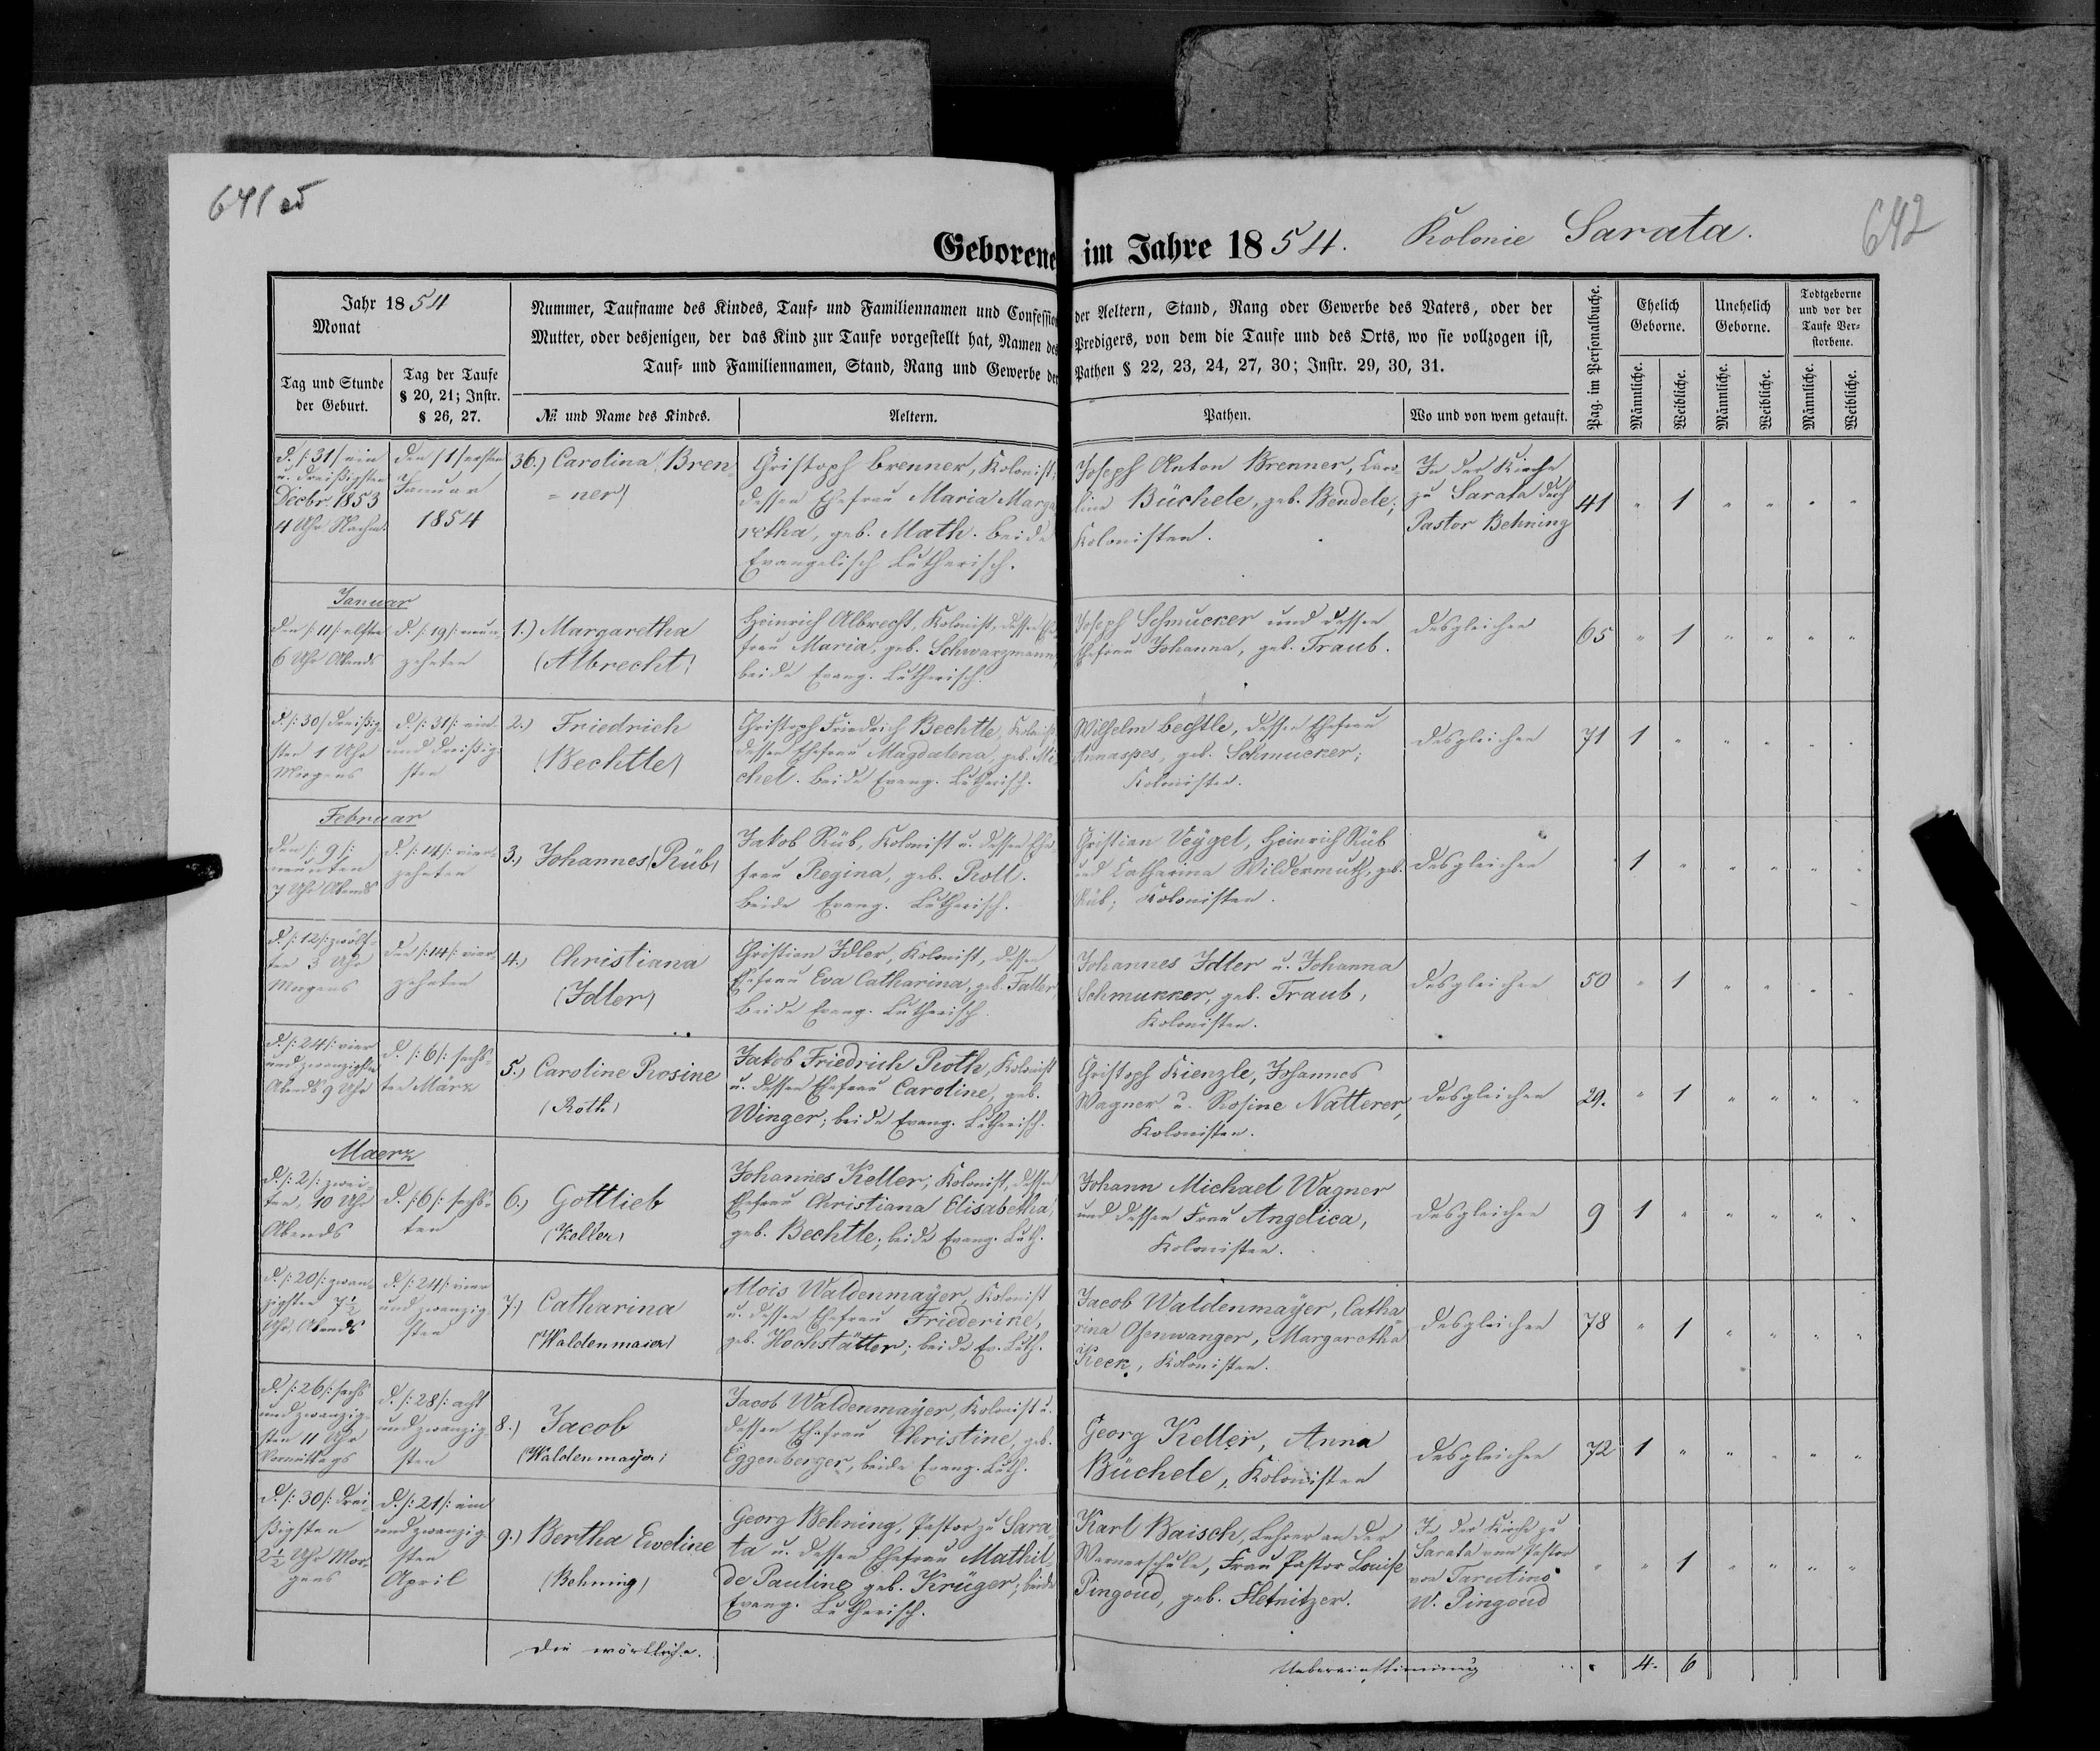 641
642
Geborene im Jahre 1854. Kolonie Sarata.
Jahr 1854
Monat
Tag und Stunde
der Geburt.
Tag der Taufe
§ 20, 21; Instr.
§ 26, 27.
Nummer, Taufname des Kindes, Tauf- und Familiennamen und Confession der Aeltern, Stand, Rang oder Gewerbe des Vaters, oder der
Mutter, oder desjenigen, der das Kind zur Taufe vorgestellt hat, Namen des Predigers, von dem die Taufe und des Orts, wo sie vollzogen ist,
Tauf- und Familiennamen, Stand, Rang und Gewerbe der Pathen § 22, 23, 24, 27, 30; Instr. 29, 30, 31.
№ und Name des Kindes.
Aeltern.
Pathen.
Wo und von wem getauft.
Pag. im Personalbuche.
Ehelich
Geborne.
Unehelich
Geborne.
Todtgeborne
und vor der
Taufe Ver-
storbene.
Männliche.
Weibliche.
Männliche.
Weibliche.
Männliche.
Weibliche.
d. /:31/ ein
u. dreißigsten
Decbr. 1853
4 Uhr Nachm.
den /1/ ersten
Januar
1854
36.) Carolina (Bren
= ner)
Christoph Brenner, Kolonist;
dessen Ehefrau Maria Marga
retha, geb. Math. beide
Evangelisch Lutherisch.
Joseph Anton Brenner, Caro-
lina Büchele, geb. Bendele;
Kolonisten.
In der Kirche
zu Sarata durch
Pastor Behning
41 " 1 " " " "
Januar
den /:11/: elften
6 Uhr Abends
d. /:19/: neun
zehnten
1.) Margaretha
(Albrecht)
Heinrich Albrecht, Kolonist, dessen Ehe
frau Maria, geb. Schwarzmann
beide Evang. Lutherisch.
Joseph Schmucker und dessen
Ehefrau Johanna, geb. Traub.
desgleichen
65 " 1 " " " "
d. /:30/ dreißig
sten 1 Uhr
Morgens
d. /:31/: ein
und dreißig
sten
2.) Friedrich
(Bechtle)
Christoph Friedrich Bechtle, Kolonist
dessen Ehefrau Magdalena, geb. Mi-
chel. beide Evang. Lutherisch.
Wilhelm Bechtle, dessen Ehefrau
geb. Schmucker;
Kolonisten.
desgleichen
71 1 " " " " "
Februar
den /:9/:
neunten
7 Uhr Abends
d. /:14/: vier-
zehnten
3.) Johannes (Rüb)
Jakob Rüb, Kolonist u. dessen Ehe
frau Regina, geb. Roll.
beide Evang. Lutherisch.
Christian Veÿgel, Heinrich Rüb
und Catharina Wildermuth, geb.
Rüb; Kolonisten.
desgleichen
1 " " " " "
d. /:12/: zwölf-
ten 3 Uhr
Morgens
den /:14/: vier-
zehnten
4.) Christiana
(Idler)
Christian Idler, Kolonist, dessen
Ehefrau Eva Catharina, geb. Faller
beide Evang. Lutherisch.
Johannes Idler u. Johanna
Schmukker, geb. Traub,
Kolonisten.
desgleichen
50 " 1 " " " "
d. /:24/: vier
und zwanzigsten
Abends 9 Uhr
d. /:6/: sechs-
ten März
5.) Caroline Rosine
(Roth)
Jakob Friedrich Roth, Kolonist
u. dessen Ehefrau Caroline, geb.
Winger; beide Evang. Lutherisch.
Christoph Kienzle, Johannes
Wagner u. Rosine Natterer,
Kolonisten.
desgleichen
29. " 1 " " " "
Maerz
d. /:2/: zwei-
ten, 10 Uhr
Abends
d. /:6/: sechs-
ten
6.) Gottlieb
(Keller)
Johannes Keller, Kolonist, dessen
Ehefrau Christiana Elisabetha,
geb. Bechtle; beide Evang. Luth.
Johann Michael Wagner
und dessen Frau Angelica,
Kolonisten.
desgleichen
9 1 " " " " "
d. /:20/: zwan-
zigsten 7½
Uhr, Abends
d. /:24/: vier
und zwanzig
sten
7.) Catharina
(Waldenmaier)
Alois Waldenmaÿer, Kolonist
u. dessen Ehefrau Friederine,
geb. Hochstätter; beide Ev. Luth.
Jacob Waldenmaÿer, Catha
rina Ofenwanger, Margaretha
Keck, Kolonisten.
desgleichen
78 " 1 " " " "
d. /:26/: sechs
und zwanzig-
sten 11 Uhr
Vormittags
d. /:28/: acht
und zwanzig
sten
8.) Jacob
(Waldenmayer)
Jacob Waldenmaÿer, Kolonist u.
dessen Ehefrau Christine, geb.
Eggenberger, beide Evang. Luth.
Georg Keller, Anna
Büchele, Kolonisten
desgleichen
72 1 " " " " "
d. /:30/: drei-
ßigsten
2½ Uhr Mor-
gens
d. /:21/: ein
und zwanzig
sten
April
9.) Bertha Eveline
(Behning)
Georg Behning, Pastor zu Sara-
ta u. dessen Ehefrau Mathil-
de Pauline geb. Krüger; beide
Evang. Lutherisch.
Karl Baisch, Lehrer an der
Wernerschule, Frau Pastor Louise
Pingoud, geb. Fletnitzer.
In der Kirche zu
Sarata vom Pastor
von Tarutino
W. Pingoud
" " 1 " " " "
Die wörtliche
Uebereinstimmung
4. 6